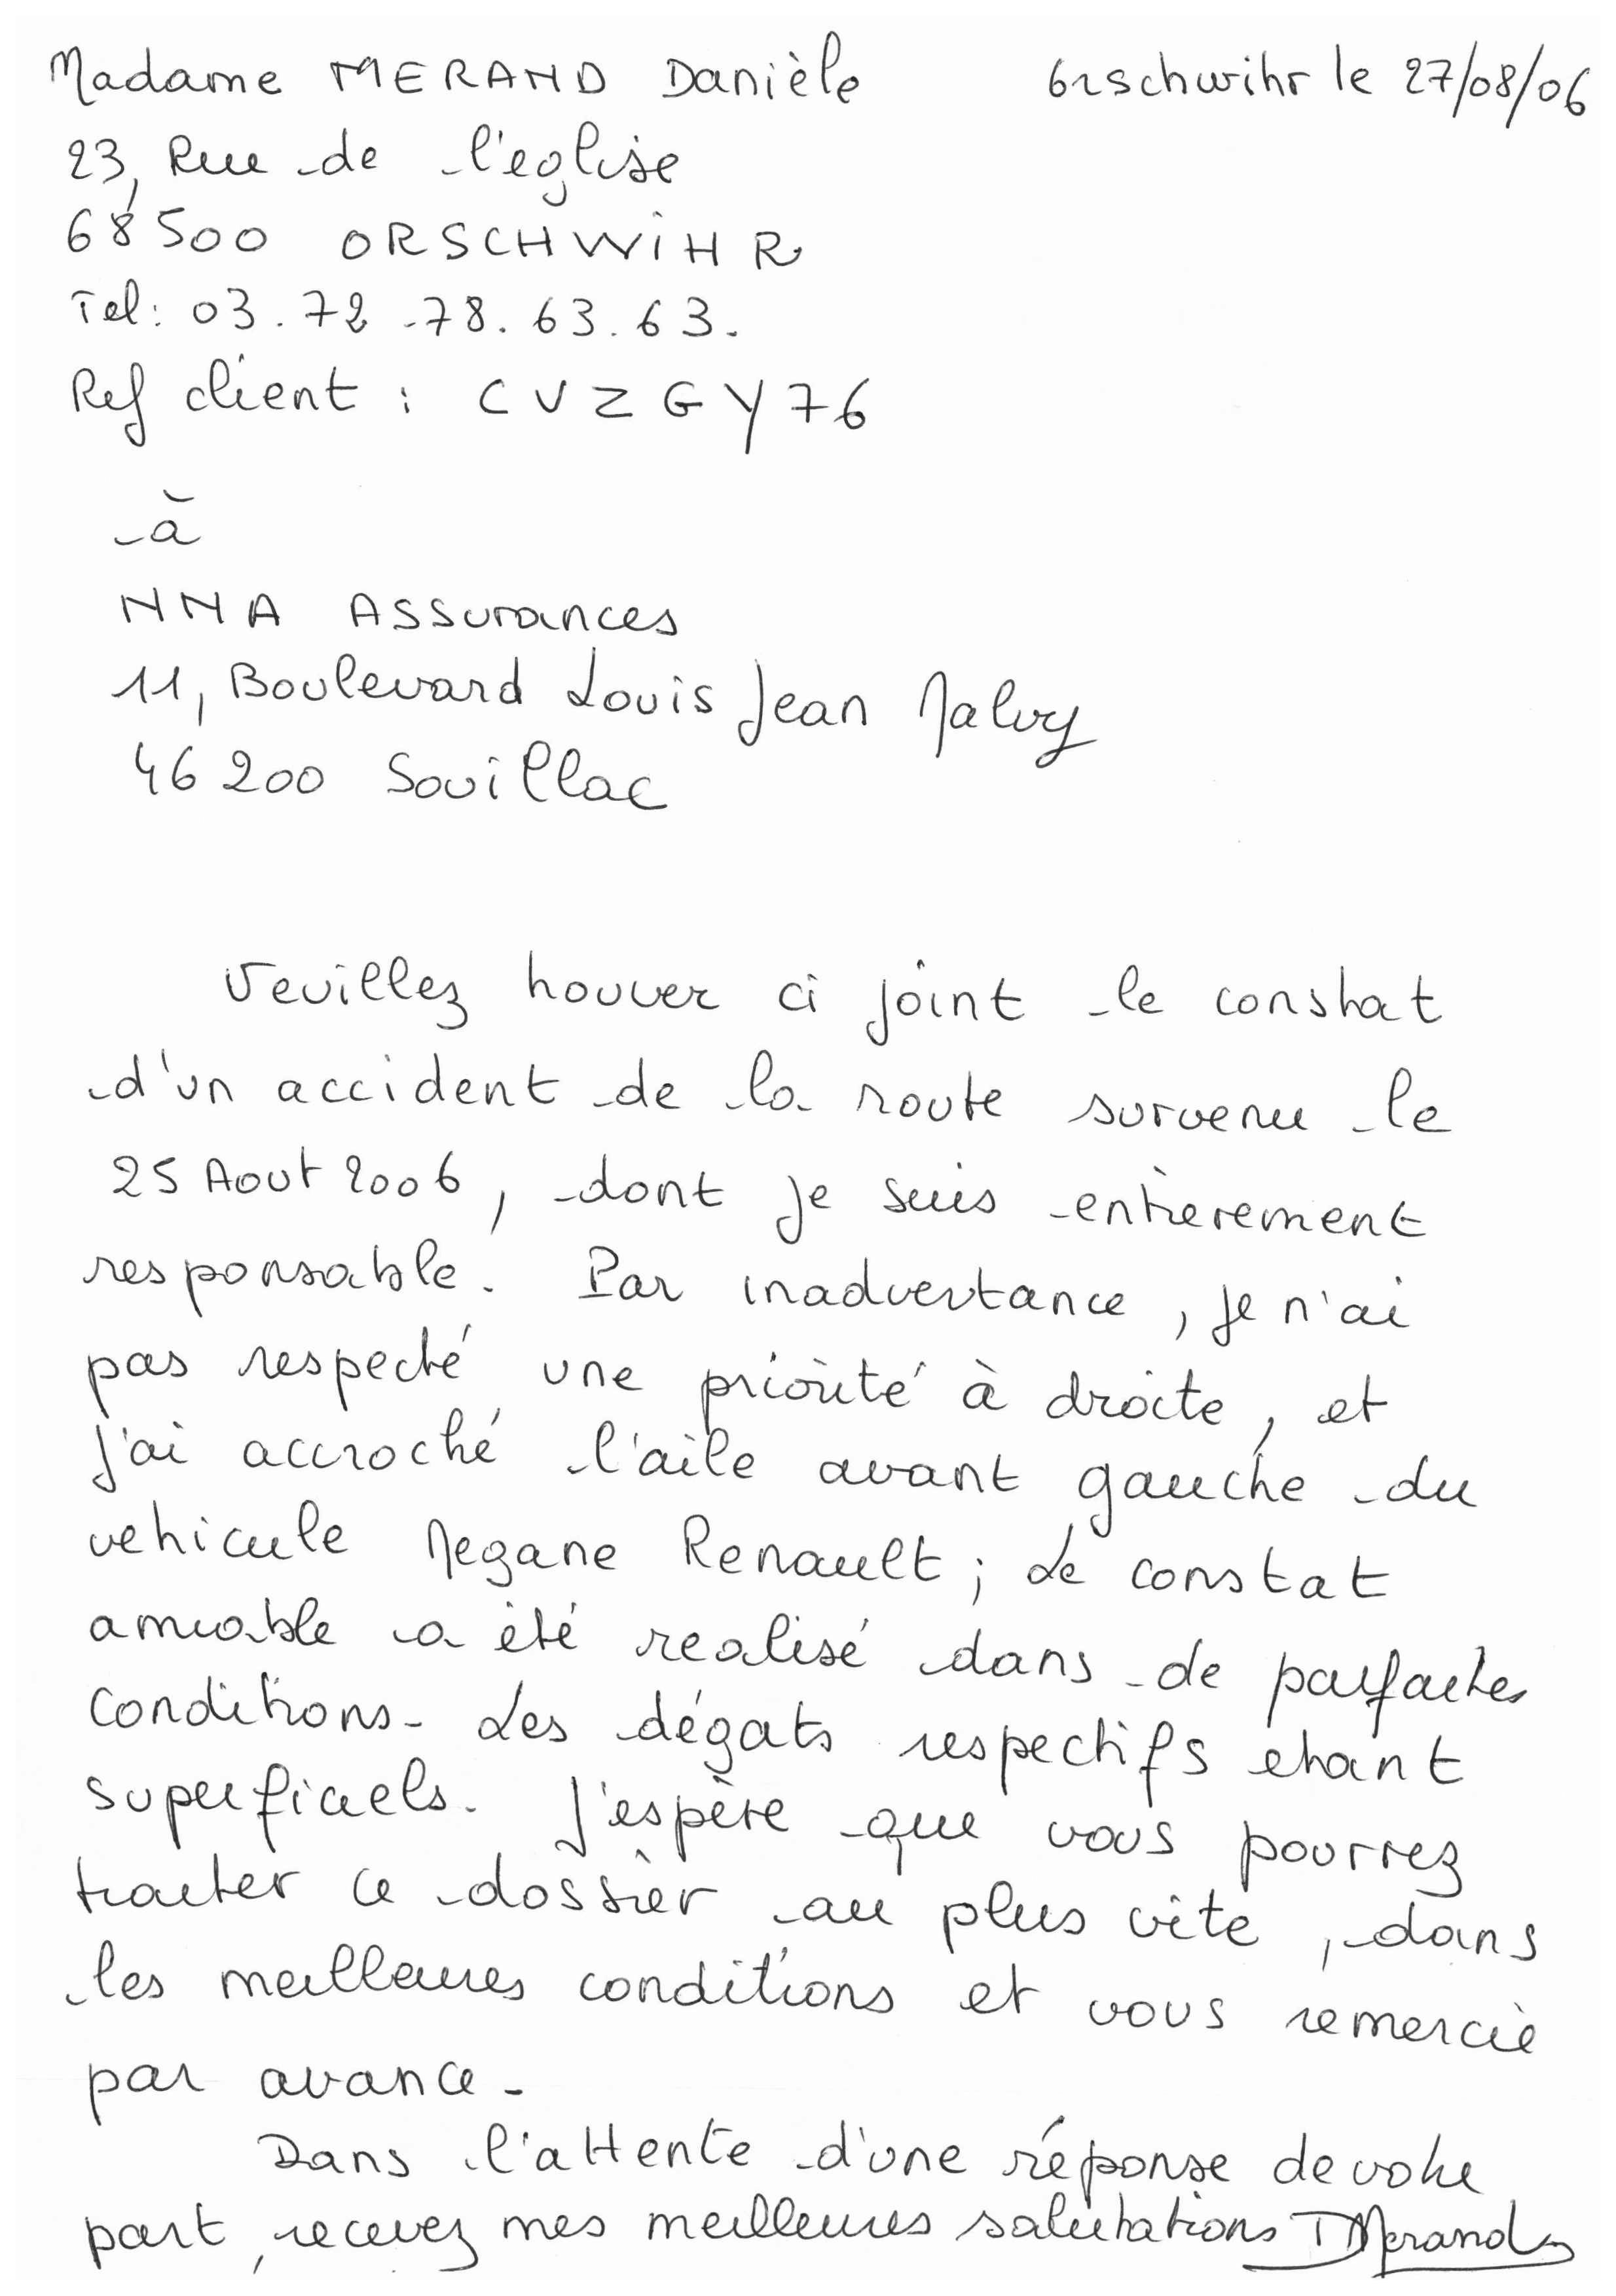 Madame MERAND Danièle Orschwihr le 27/08/06
23, Rue de l'eglise
68500 ORSCHWIHR
Tel: 03.72.78.63.63.
Ref client : CVZGY76
à
NNA Assurances
11, Boulevard Louis Jean Malvy
46200 Souillac
Veuillez trouver ci joint le constat
d'un accident de la route survenu le
25 Aout 2006, dont je suis entièrement
responsable. Par inadvertance, je n'ai
pas respecté une priorité à droite, et
j'ai accroché l'aile avant gauche du
vehicule Megane Renault; Le constat
amiable a été realisé dans de parfaites
conditions. Les dégats respectifs etant
superficiels. J'espère que vous pourrez
traiter ce dossier au plus vite, dans
les meilleures conditions et vous remercie
par avance.
Dans l'attente d'une réponse de votre
part, recevez mes meilleures salutations DMerand